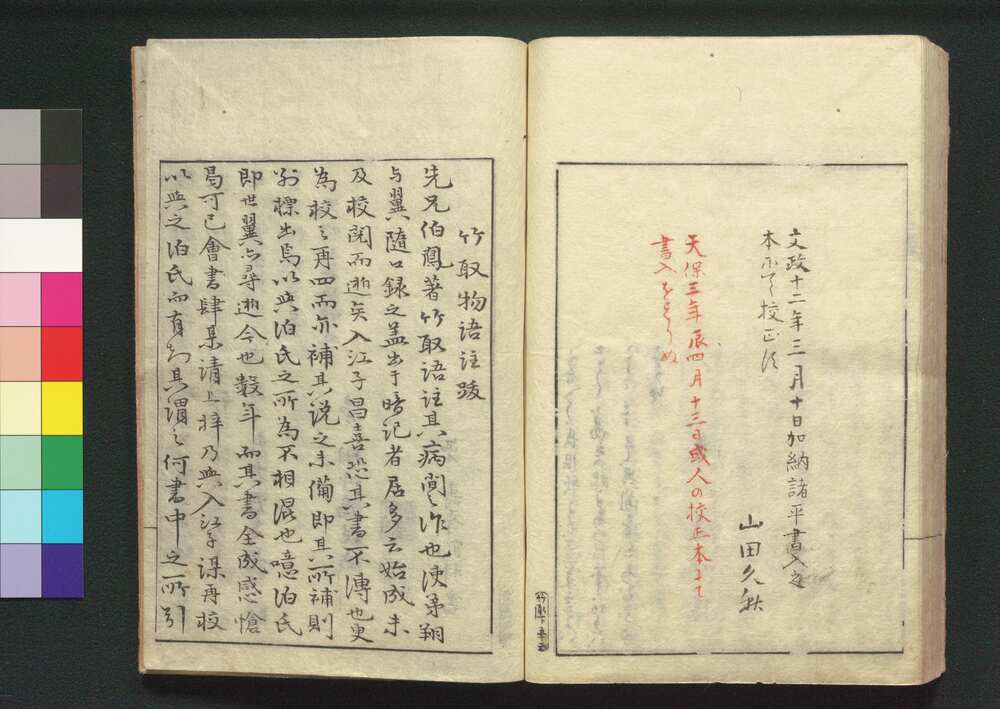 文政十二年三月十日加納諸平書入之
本にて校正す
山田久秋
天保三年辰四月十三日或人の校正本にて
書入ををはりぬ
竹取物語註跋
先兄伯鳳著竹取語註其病間之作也使弟翔
与翼隨口録之盖出于暗記者居多云始成未
及校閲而逝矣入江子昌喜恐其書不傳也更
為校之再四而亦補其説之未備即其所補則
別標出焉以與泊氏之所為不相混也噫泊氏
即世翼亦尋逝今也數年而其書全成感愴
曷可已會書肆某請上梓乃與入江子謀再校
以與之泊氏而有知其謂之何書中之所引